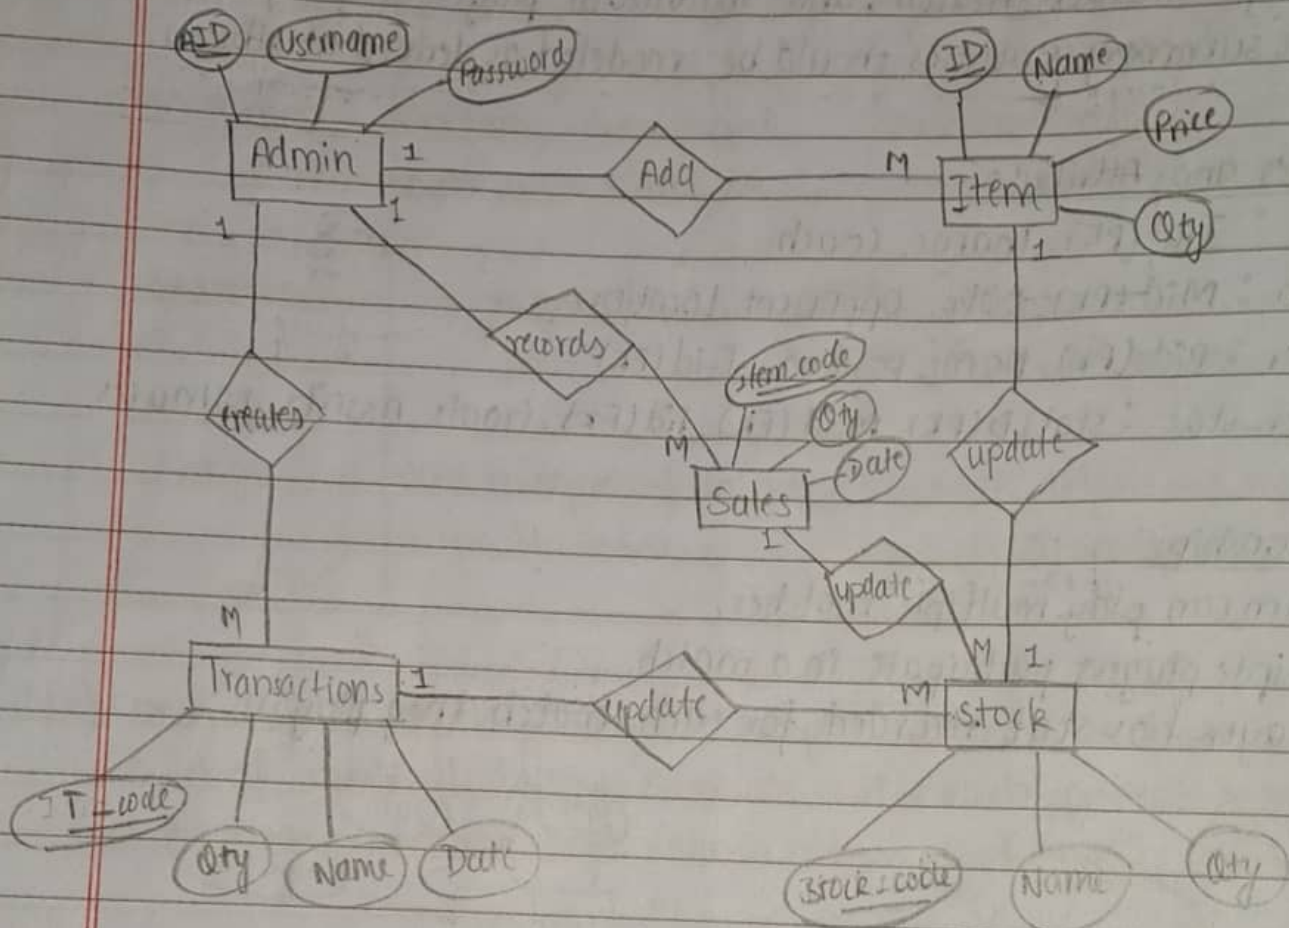 AID Username Password
ID Name
Price
Qty
Admin 1 Add M Item
1 1 1
records
Item_code
Qty.
Date
creates
M Sales
update
1
update
M
M 1
Transactions 1 update M Stock
T_code
Qty Name Date
Stock_code Name Qty